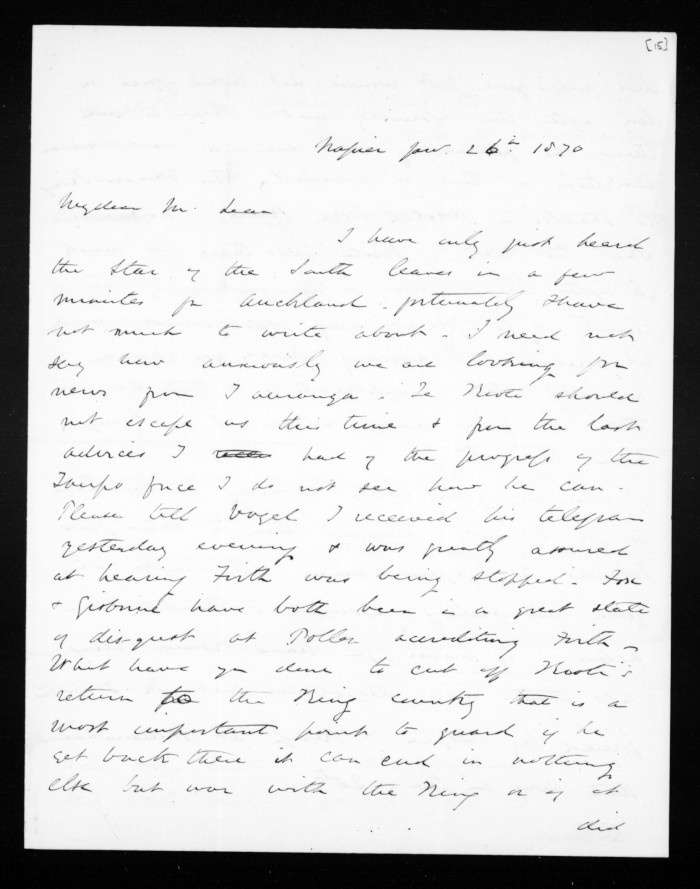 [15]
Napier Jan. 26th 1870
My dear Mr. Lean
I have only just heard
the Star of the South leaves in a few
minutes for Auckland - fortunately I have
not much to write about - I need not
say how anxiously we are looking for
news from Tauranga Te Kooti should
not escape us this time & from the last
advices I had of the progress of the
Taupo force I do not see how he can -
Please tell Vogel I received his telegram
yesterday evening & was greatly
at hearing Firth was being stopped - Fox
& Gisborne have both been in a great state
of disgust at Pollen accrediting Firth -
What have you done to cut off Kooti's
return to the King country that is a
most important point to guard if he
get back there it can end in nothing
else but war with the King or if it
did